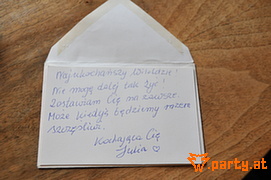 Najukochańszy Wiktorze!
Nie mogę dalej tak żyć!
Zostawiam Cię na zawsze.
Może kiedyś będziemy razem
szczęśliwi.
Kochająca Cię
Julia ♡
party.at